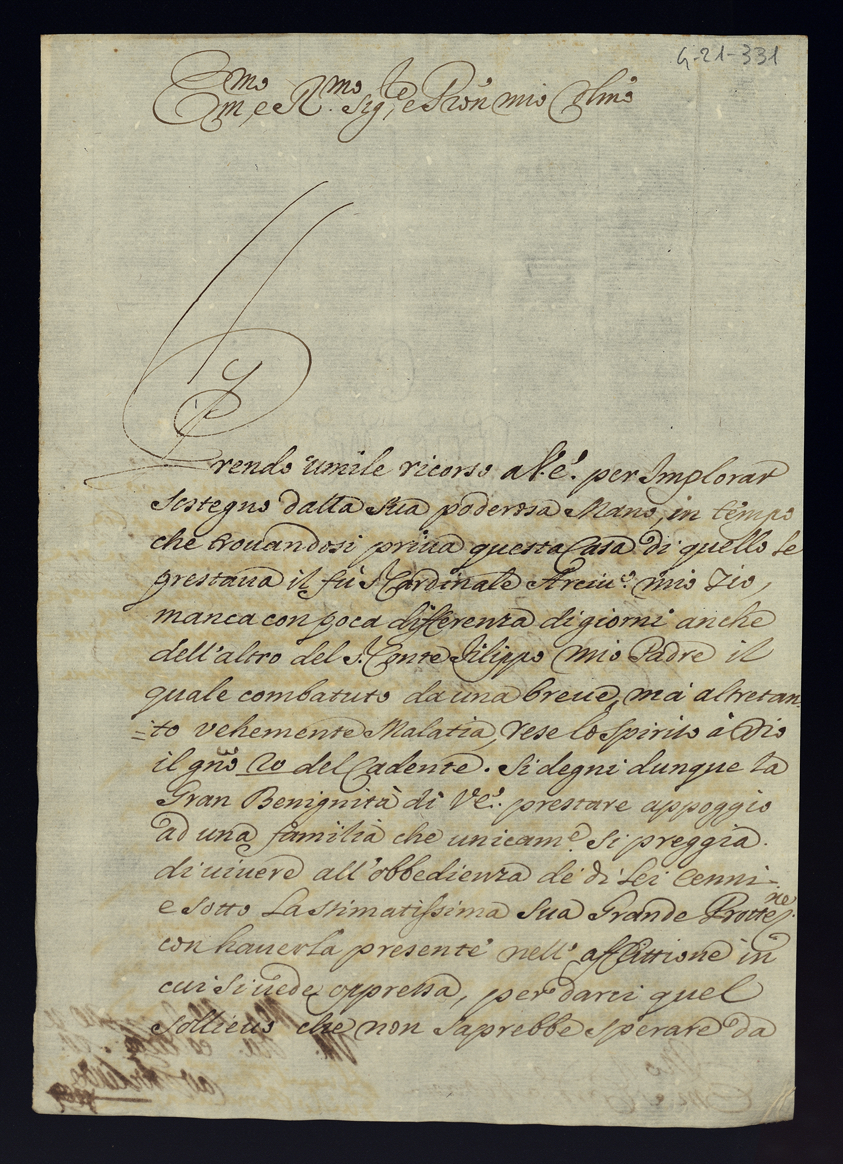 G-21-331
Em.mo e R.mo Sig.re e Pròn mio Colmo
Prendo umile ricorso a V.E. per Implorar
sostegno dalla sua poderosa Mano, in tempo
che trouandosi priua questa Casa di quello le
prestaua il fù S. Cardinale Arciu.o mio Zio,
manca con poca differenza di giorni anche
dell'altro del S. Conte Filippo mio Padre il
quale combatuto da una breue, mà altretan
=to vehemente Malatia, rese lo spirito à Dio
il gño 20 del Cadente. Si degni dunque la
Gran Benignità di V.E. prestare appoggio
ad una familia che unicam.e si preggia
di uiuere all'obbedienza de di Lei Cenni
e sotto La stimatissima Sua Grande Prottez.ne
con hauerla presente nell'afflittione in
cui si uede oppressa, per darci quel
sollieuo che non saprebbe sperare da